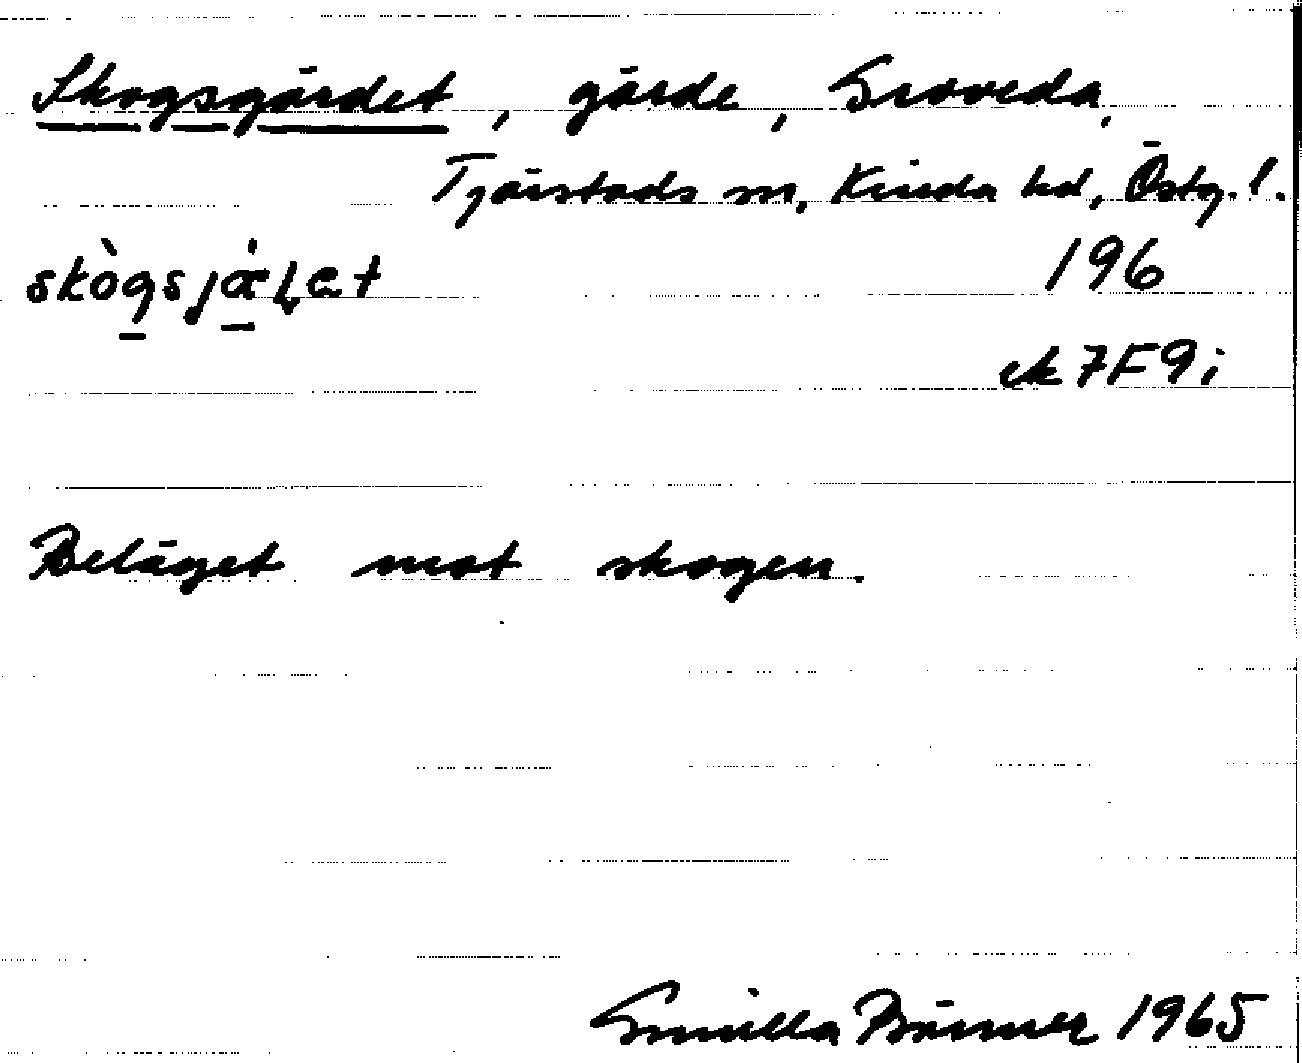 Skogsgärdet, gärde, Groveda,
Tjärstads sn, Kinda hd, Östg. l.
skògsjæ̀ḷet 196
ek 7F9i
Beläget mot skogen.
Gunilla Bärner 1965